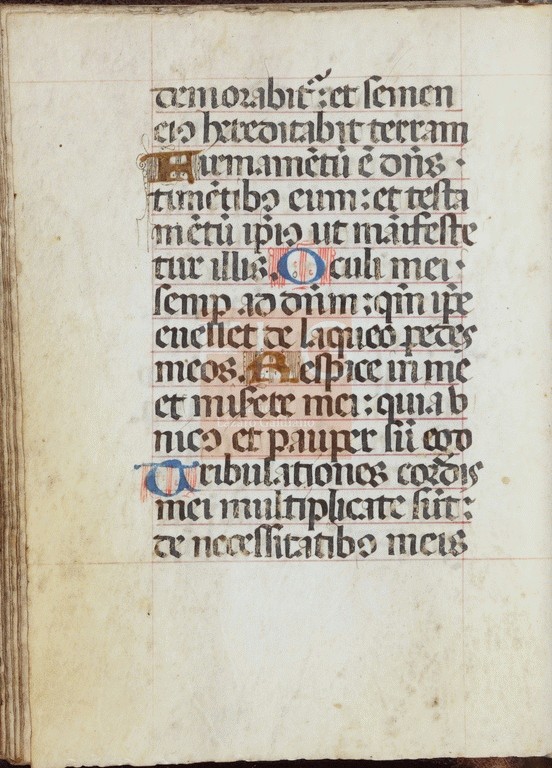 demorabit᷑: et semen
eiꝰ hereditabit terram
Firmamētū ē dn̄s ·
timētibꝰ eum: et testa
mētū ip̄iꝰ ut māifeste
tur illis. Oculi mei ·
semꝑ ad dn̄m: qm̄ ip̄e
euellet de laqueo pedes
meos. Respice in me
et misere mei: quia v
nicꝰ et pauper sū ego
Tribulationes cordis
mei multiplicate sūt:
de necessitatibꝰ meis